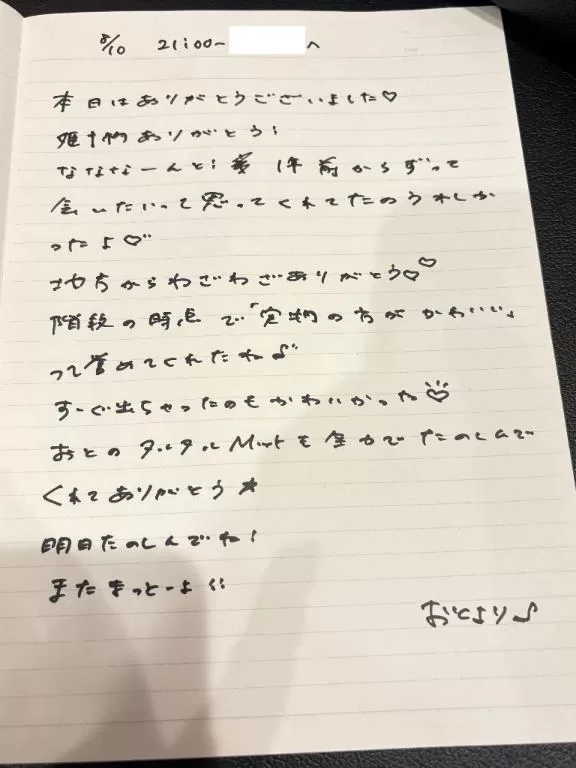 8/10 21:00~ へ
本日はありがとうございました♡
姫予約ありがとう!
なななーんと! 1年前からずって
会いたいって思ってくれてたのうれしか
ったよ♡
地方からわざわざありがとう♡♡
階段の時点で「実物の方がかわいい」
って誉めてくれたね♪
すーぐ出ちゃったのもかわいかったね♡
おとのヌルヌルMットも全力でたのしんで
くれてありがとう★
明日たのしんでね!
またまっとーよ!!
おとより♪